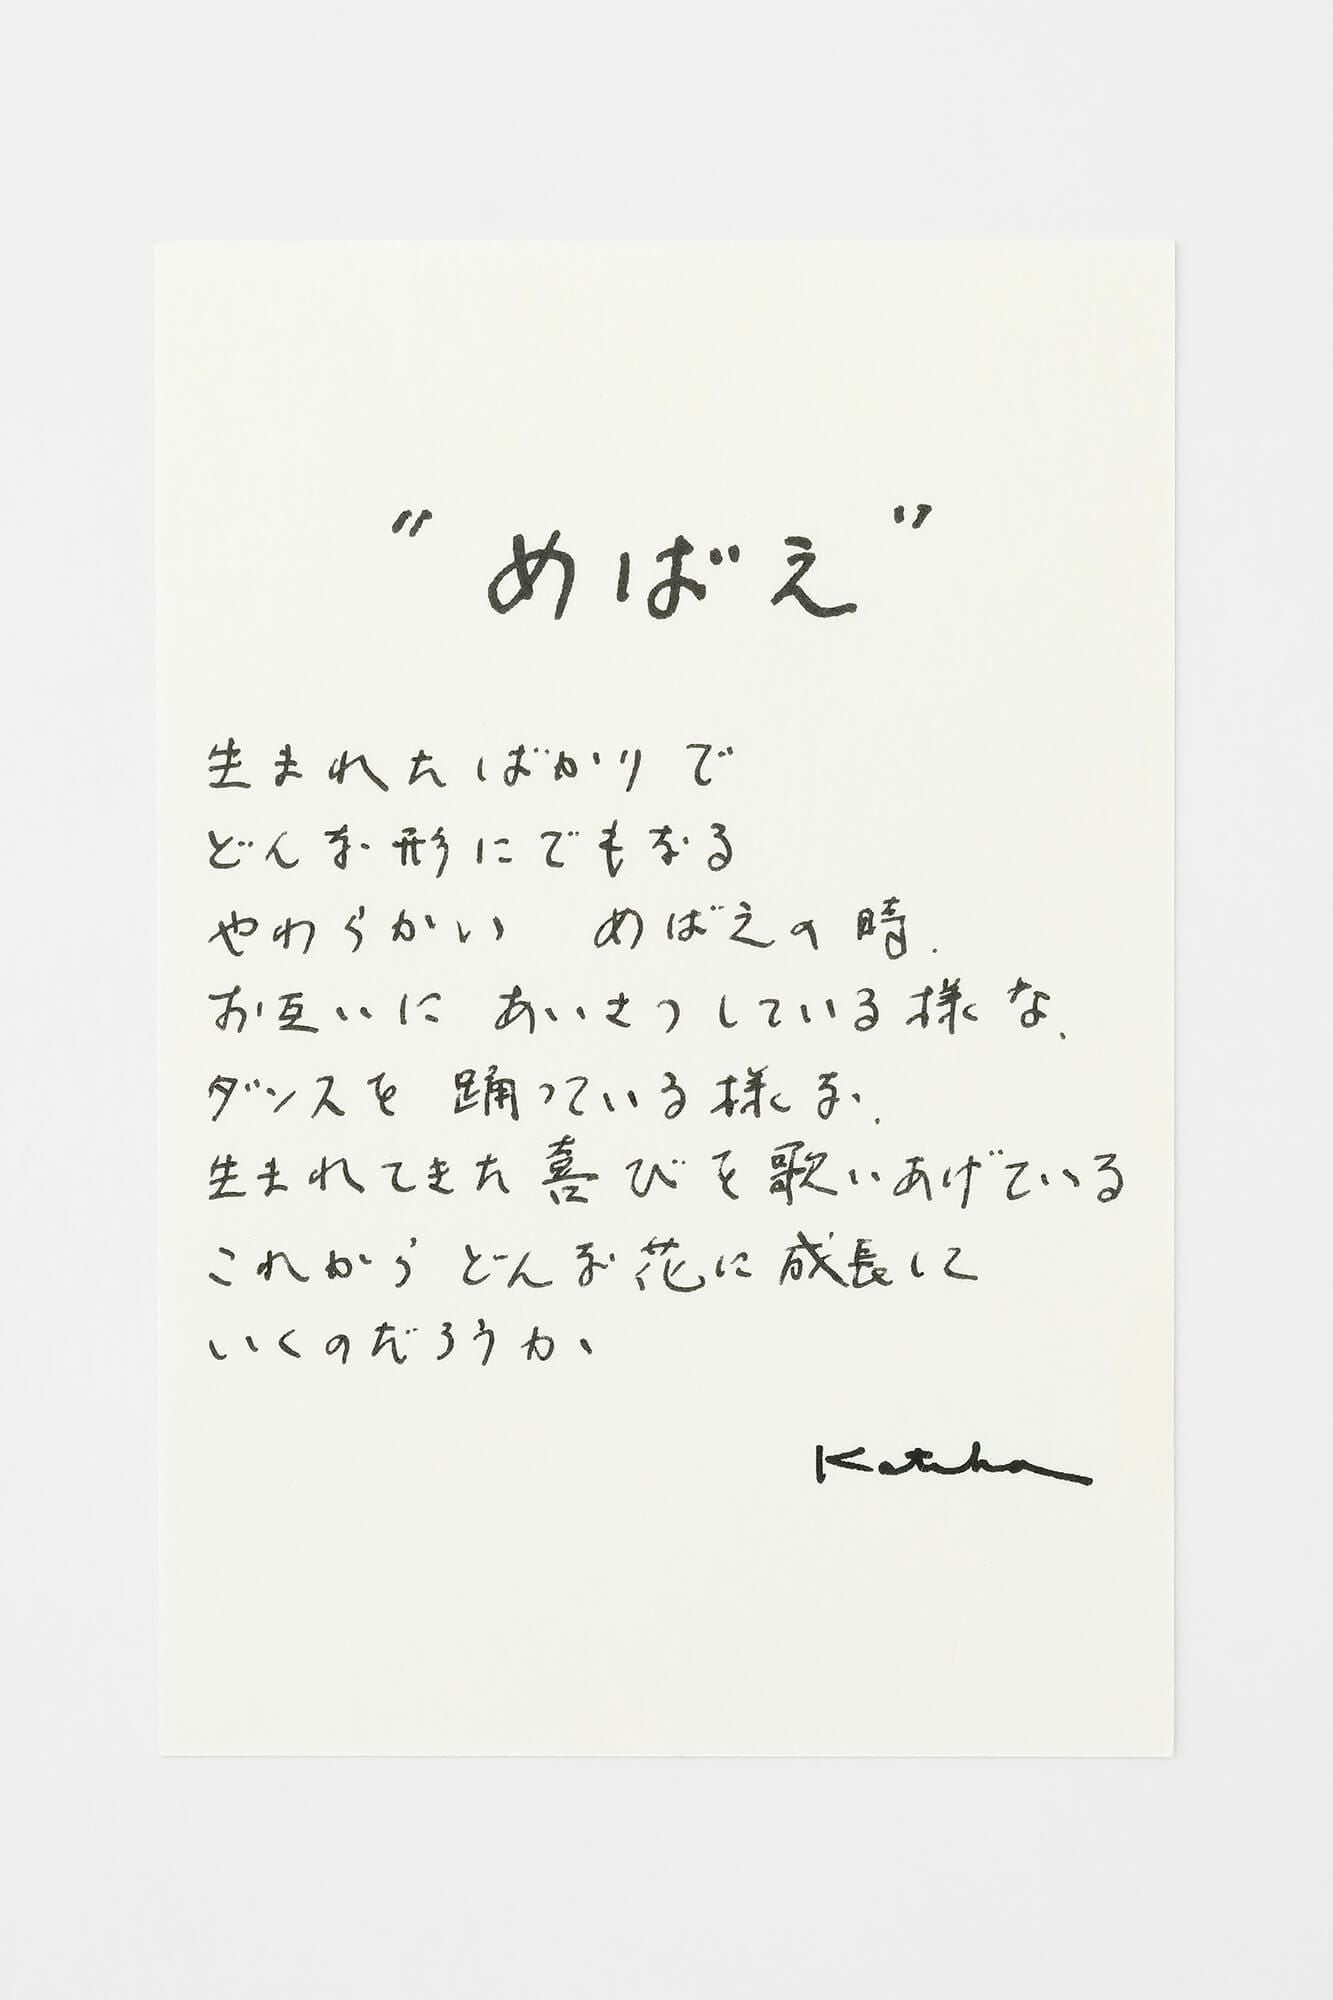 "めばえ"
生まれたばかりで
どんな形にでもなる
やわらかい　めばえの時.
お互いに　あいさつしている様な.
ダンスを　踊っている様な.
生まれてきた喜びを歌いあげている
これから　どんな花に成長して
いくのだろうか